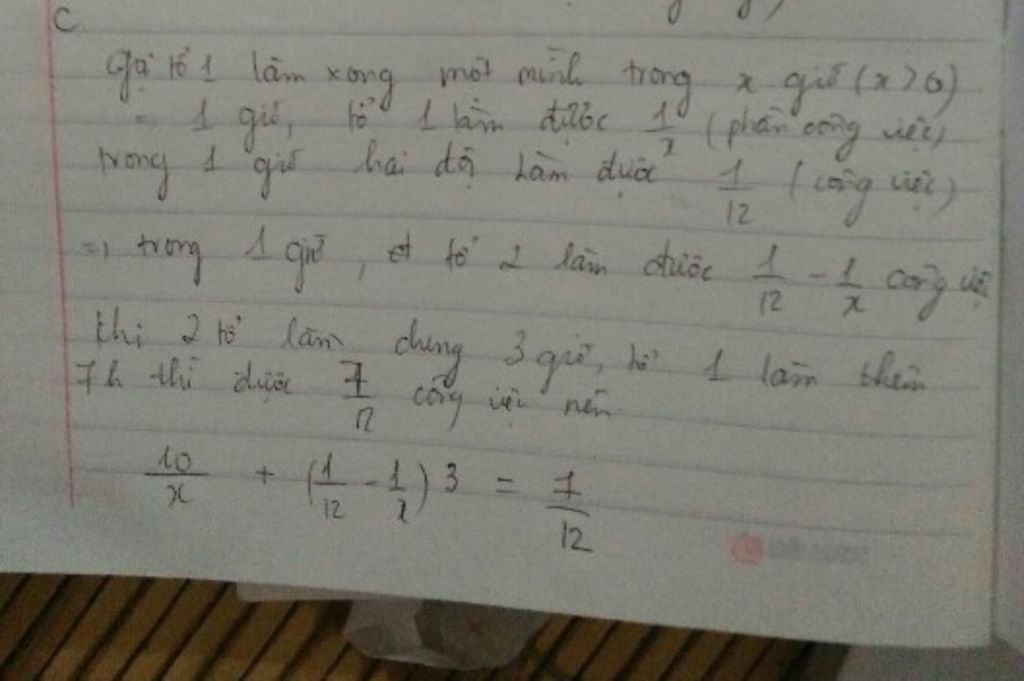 C.
Gọi tổ 1 làm xong một mình trong x giờ (x > 0)
=> 1 giờ, tổ 1 làm được 1/x (phần công việc)
trong 1 giờ hai đội làm được 1/12 (công việc)
=> trong 1 giờ, tổ 2 làm được 1/12 - 1/x công việc
Khi 2 tổ làm chung 3 giờ, tổ 1 làm thêm
7h thì được 7/12 công việc nên
10/x + (1/12 - 1/x) 3 = 7/12